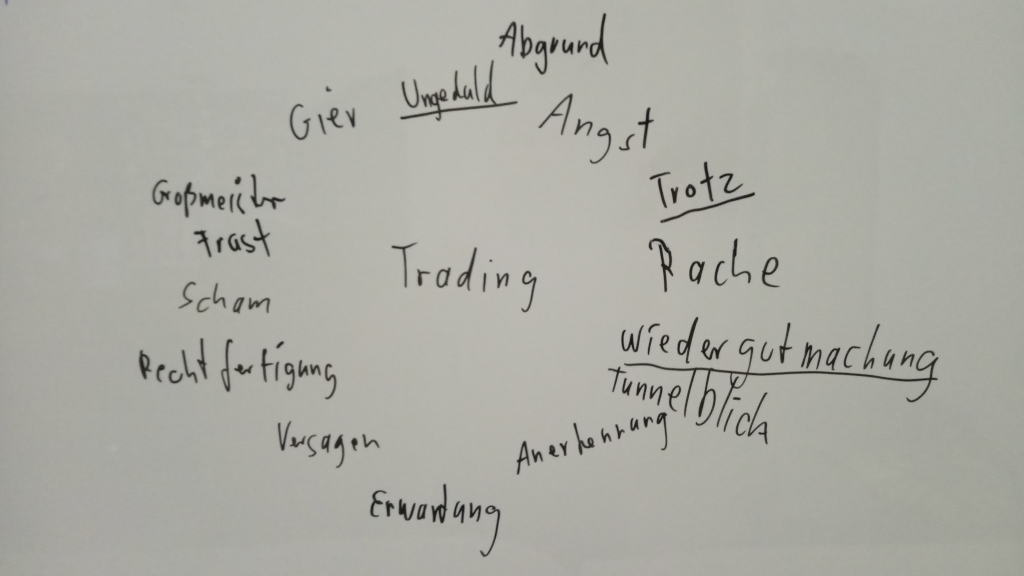 Abgrund
Gier Ungeduld Angst
Großmeister Trotz
Frust
Trading Rache
Scham
Wiedergutmachung
Rechtfertigung Tunnelblick
Versagen Anerkennung
Erwartung